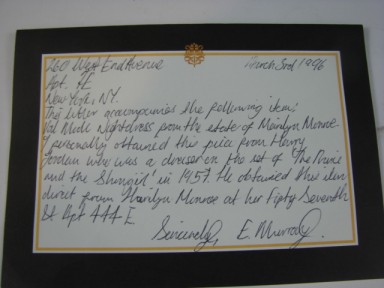 260 West End Avenue
March 3rd 1996
Apt. 9E
New York, NY.
This letter accompanies the following item:
Val Mode Nightdress from the estate of Marilyn Monroe.
I personally obtained this piece from Henry
who was a dresser on the set of 'The Prince
and the Showgirl' in 1957. He obtained this item
direct from Marilyn Monroe at her Fifty Seventh
St. Apt 444 E
Sincerely, E. Murray.